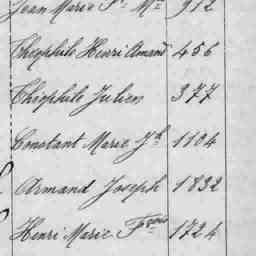 Jean Marie Fs Me 912
Théophile Henri Amand 456
Théophile Julien 377
Constant Marie Jh 1104
Armand Joseph 1832
Henri Marie Fçois 1724